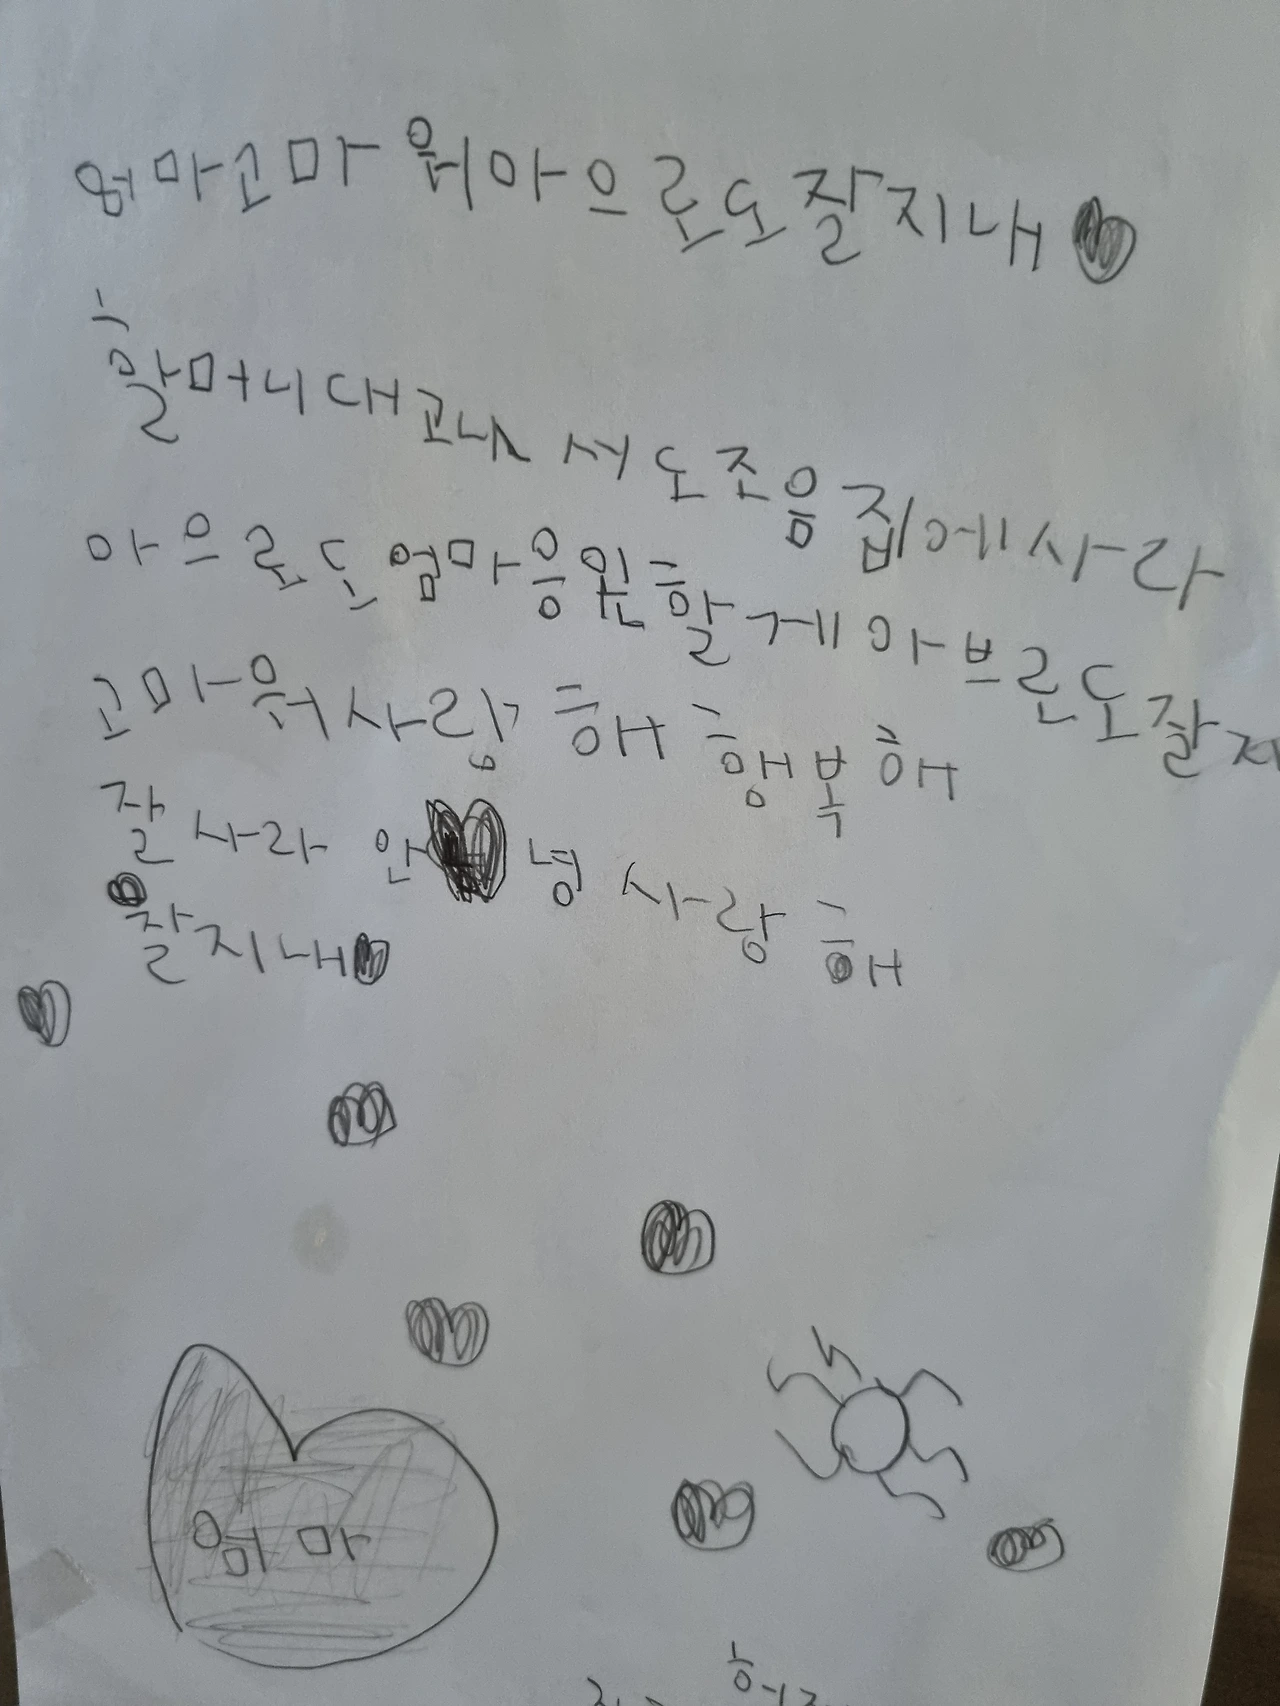 엄마고마워아으로도잘지내
할머니대고내서도조음집에사라
아으로도엄마응원할게아브로도잘지
고마워사랑해행복해
잘사라안녕사랑해
잘지내
엄마